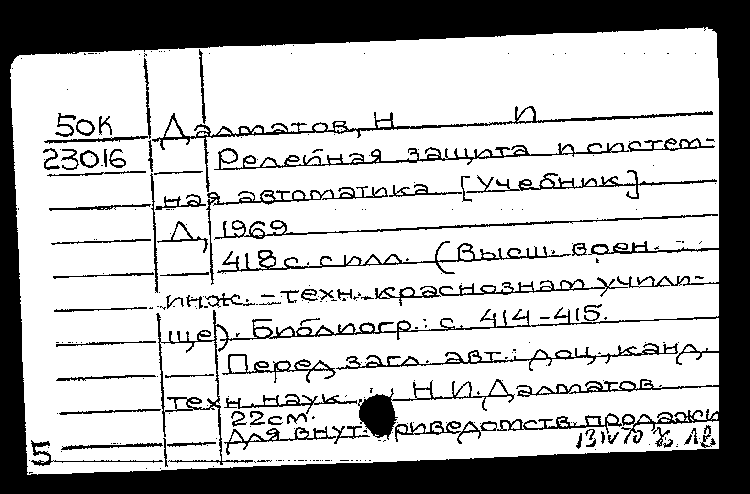 50К Далматов, Н И
23016 Релейная защита и систем-
ная автоматика [Учебник].
Л., 1969
418 с. с илл. (Высш. воен.
инж.-техн. краснознам училищ-
ще). Библиогр.: с. 414-415.
Перед загл. авт.: доц., канд.
техн. наук Н.И. Далматов.
22см.
Для внут приведомств. продажи
5 13 IV 70